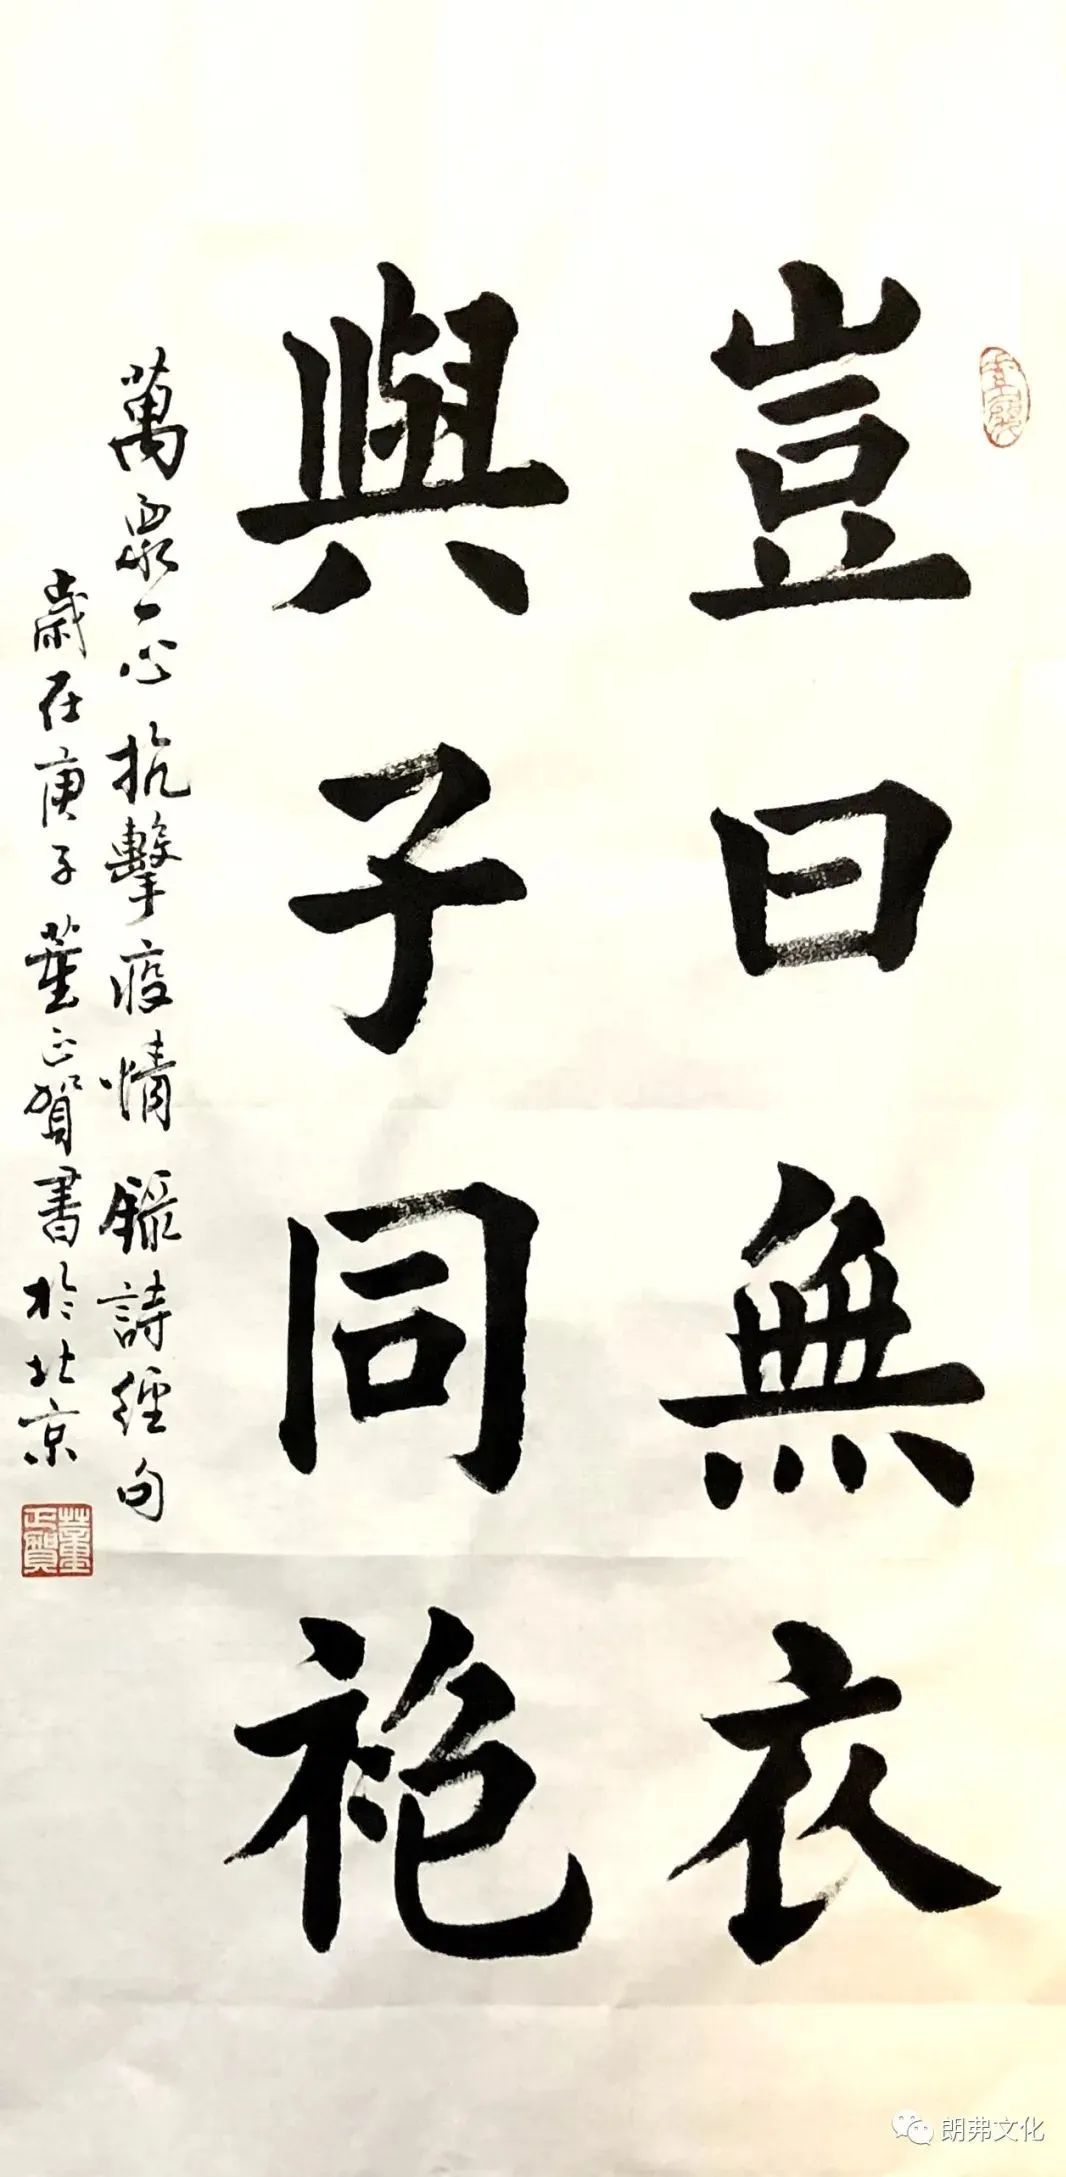 豈曰無衣
與子同袍
萬眾一心抗擊疫情録詩經句
歲在庚子董正賀書於北京
董正賀
朗弗文化